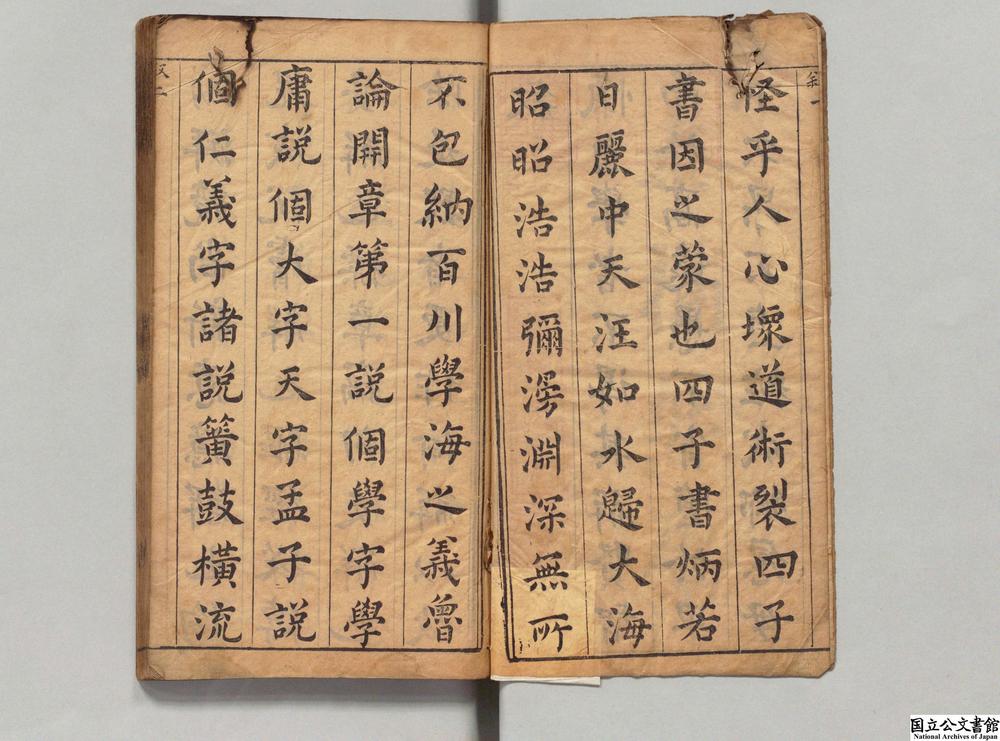 怪乎人心壞道術裂四子
書因之蒙也四子書炳若
日麗中天汪如水歸大海
昭昭浩浩彌滂淵深無所
不包納百川學海之義魯
論開章第一說個學字學
庸說個大字天字孟子說
個仁義字諸說簧鼓橫流
國立公文書館
National Archives of Japan